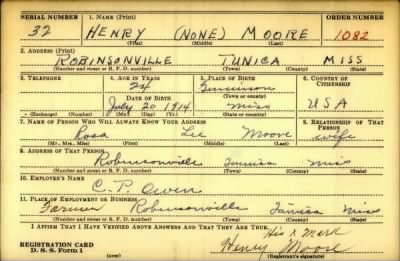 SERIAL NUMBER 1. NAME (Print) ORDER NUMBER
32 HENRY (NONE) MOORE 1082
(First) (Middle) (Last)
2. ADDRESS (Print)
ROBINSONVILLE TUNICA MISS
(Number and street or R. F. D. number) (Town) (County) (State)
3. TELEPHONE 4. AGE IN YEARS 5. PLACE OF BIRTH 6. COUNTRY OF CITIZENSHIP
24
DATE OF BIRTH (Town or county)
July 20 1914 Miss USA
(Exchange) (Number) (Mo.) (Day) (Yr.) (State or country)
7. NAME OF PERSON WHO WILL ALWAYS KNOW YOUR ADDRESS 8. RELATIONSHIP OF THAT PERSON
Rosa Lee Moore wife
(Mr., Mrs., Miss) (First) (Middle) (Last)
9. ADDRESS OF THAT PERSON
Robinsonville Tunica Miss
(Number and street or R. F. D. number) (Town) (County) (State)
10. EMPLOYER'S NAME
C. P. Owen
11. PLACE OF EMPLOYMENT OR BUSINESS
Farmer Robinsonville Tunica Miss
(Number and street or R. F. D. number) (Town) (County) (State)
I AFFIRM THAT I HAVE VERIFIED ABOVE ANSWERS AND THAT THEY ARE TRUE.
His X Mark
REGISTRATION CARD Henry Moore
D. S. S. Form 1 (Registrant's signature)